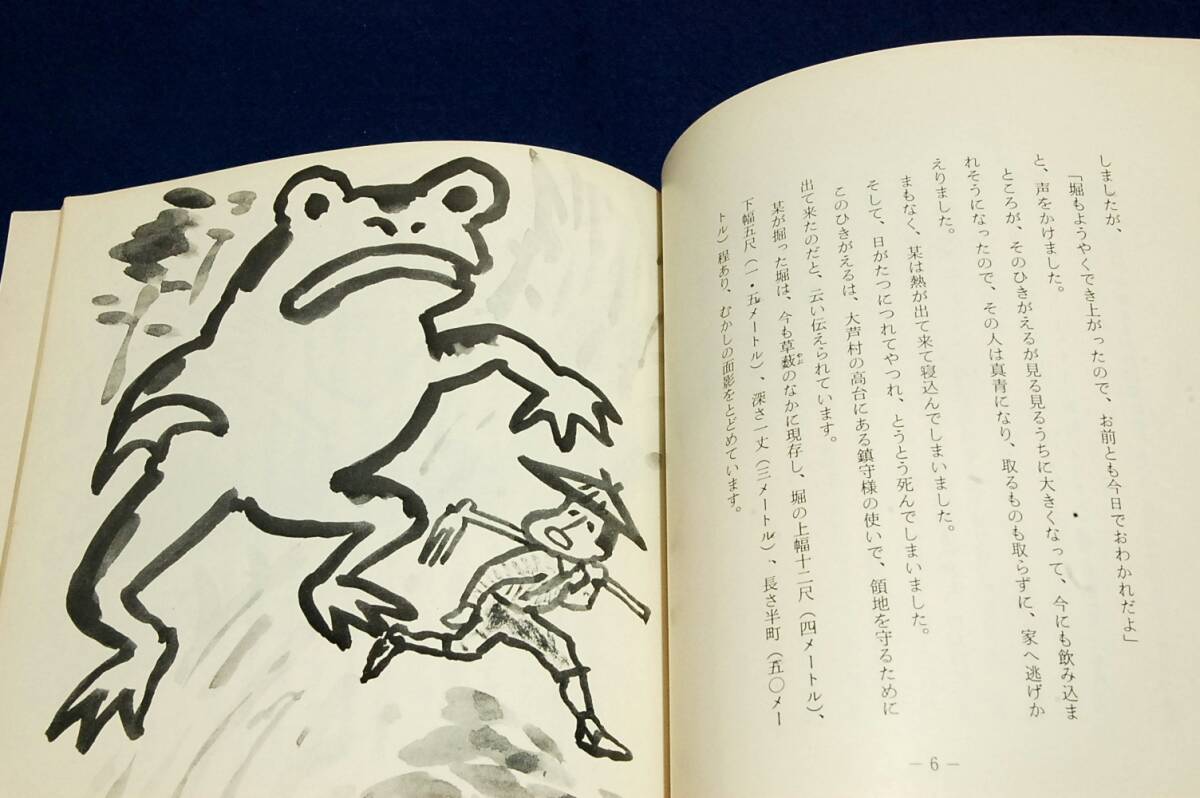 しましたが、
「堀もようやくでき上がったので、お前とも今日でおわかれだよ」
と、声をかけました。
ところが、そのひきがえるが見る見るうちに大きくなって、今にも飲み込ま
れそうになったので、その人は真青になり、取るものも取らずに、家へ逃げか
えりました。
まもなく、某は熱が出て来て寝込んでしまいました。
そして、日がたつにつれてやつれ、とうとう死んでしまいました。
このひきがえるは、大芦村の高台にある鎮守様の使いで、領地を守るために
出て来たのだと、云い伝えられています。
某が掘った堀は、今も草薮やぶのなかに現存し、堀の上幅十二尺（四メートル）、
下幅五尺（一・五メートル）、深さ一丈（三メートル）、長さ半町（五〇メー
トル）程あり、むかしの面影をとどめています。
— 6 —